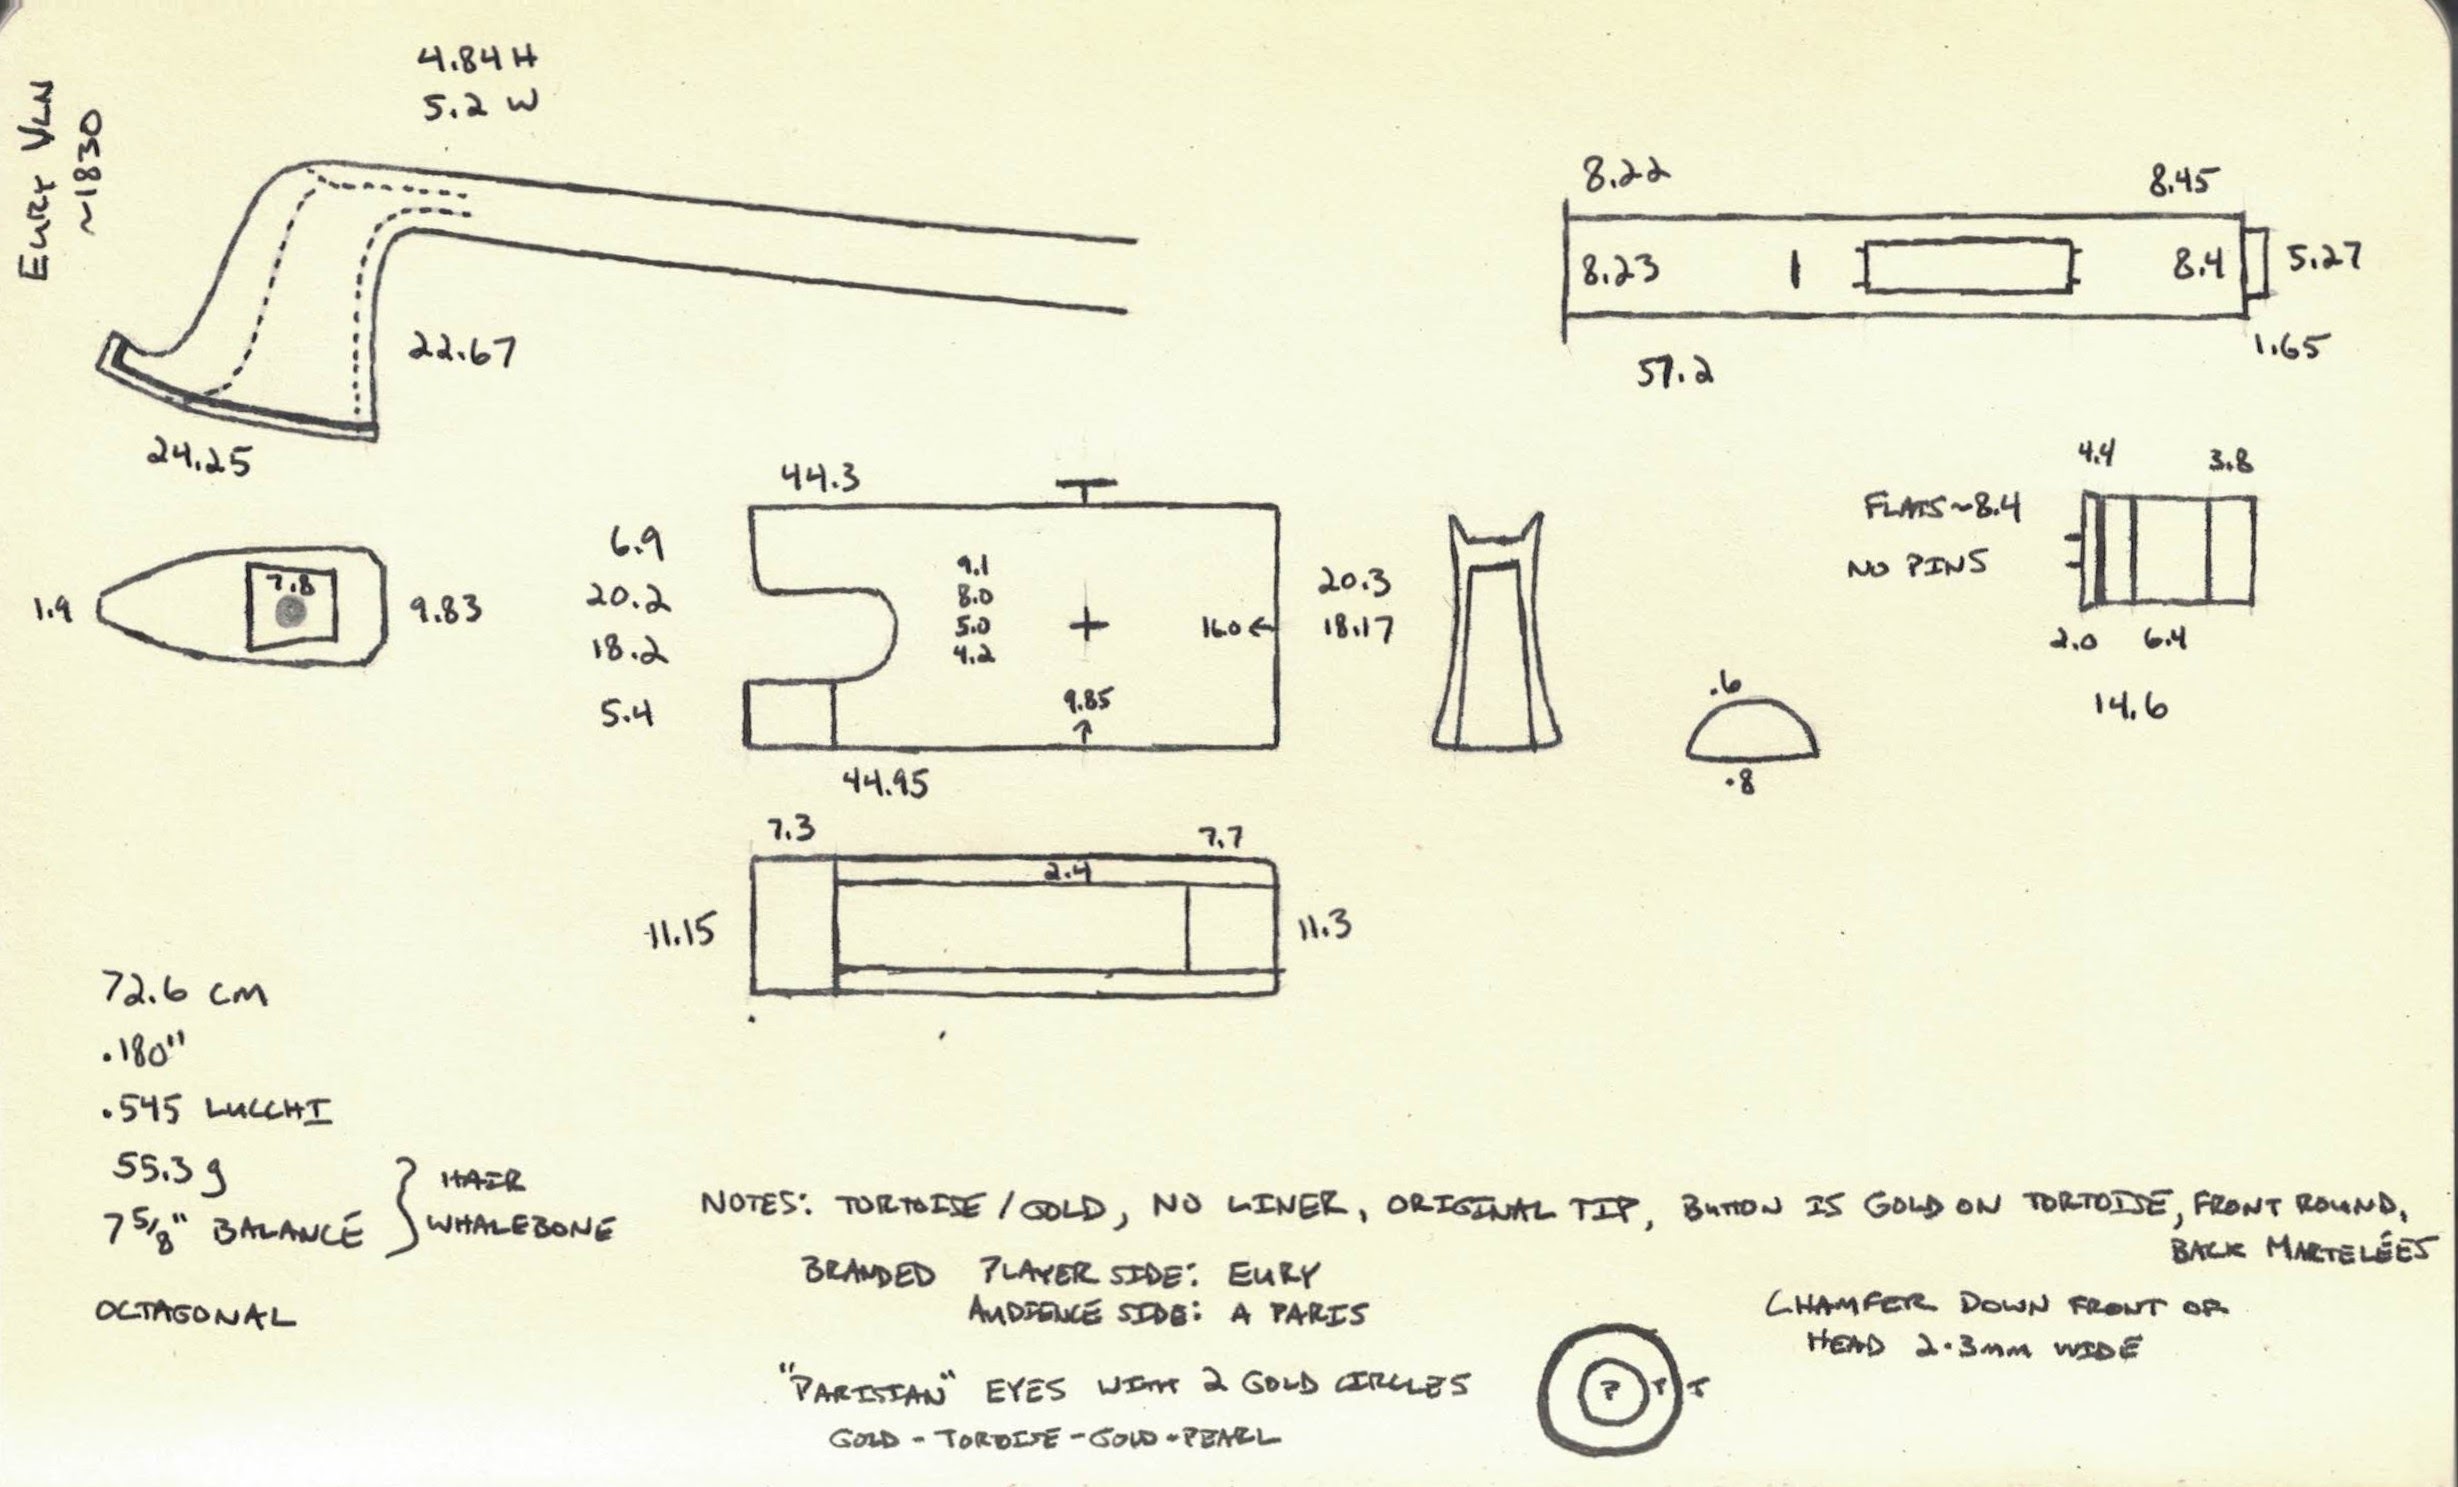 EURY VLN
~1830
4.84 H
5.2 W
22.67
24.25
8.22
8.45
8.23
8.4
5.27
1.65
57.2
1.9
7.8
9.83
44.3
6.9
20.2
18.2
5.4
9.1
8.0
5.0
4.2
16.0
9.85
44.95
20.3
18.17
.6
.8
FLATS ~ 8.4
NO PINS
4.4
3.8
2.0
6.4
14.6
7.3
7.7
2.4
11.15
11.3
72.6 CM
.180"
.545 LUCCHI
55.3 g
7 5/8" BALANCE
HAIR
WHALEBONE
OCTAGONAL
NOTES: TORTOISE / GOLD, NO LINER, ORIGINAL TIP, BUTTON IS GOLD ON TORTOISE, FRONT ROUND,
BACK MARTELÉES
BRANDED PLAYER SIDE: EURY
AUDIENCE SIDE: A PARIS
CHAMFER DOWN FRONT OF
HEAD 2.3mm WIDE
"PARISIAN" EYES WITH 2 GOLD CIRCLES
GOLD - TORTOISE - GOLD - PEARL
P T